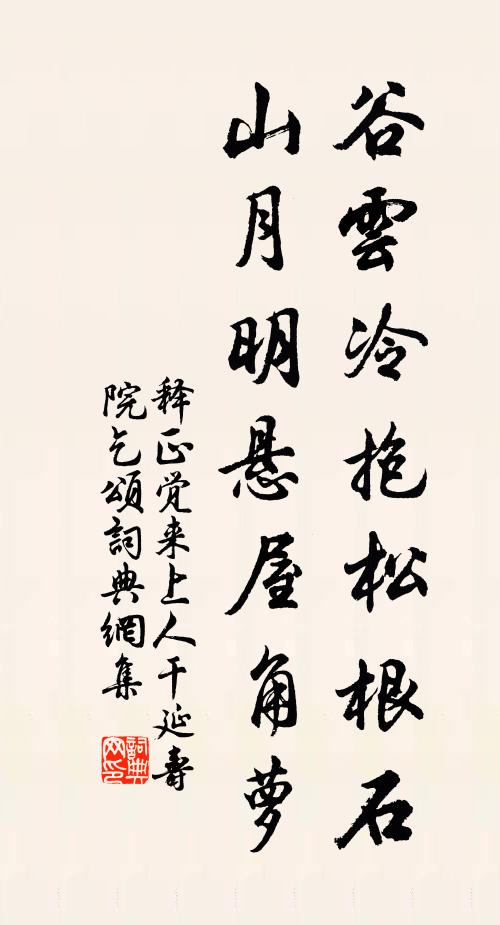 谷雲冷抱松根石
山月明悬屋角萝
释正觉来上人干延壽
院乞頌詞典網集
詞典
网印